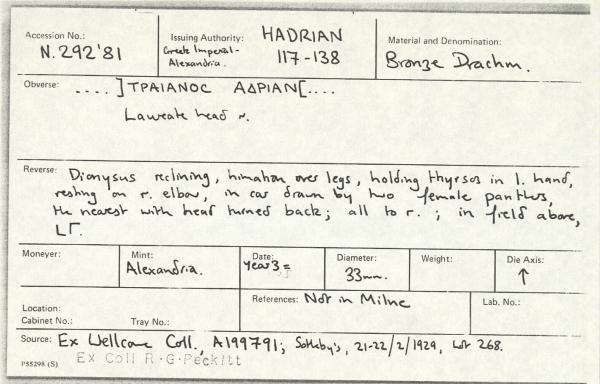 Accession No.: N.292'81
Issuing Authority: HADRIAN
Greek Imperial- 117-138
Alexandria.
Material and Denomination:
Bronze Drachm.
Obverse: ....]ΤΡΑΙΑΝΟC ΑΔΡΙΑΝ[....
Laureate head r.
Reverse: Dionysus reclining, himation over legs, holding thyrsos in l. hand,
resting on r. elbow, in car drawn by two female panthers,
the nearest with head turned back; all to r. ; in field above,
LΓ.
Moneyer:
Mint: Alexandria.
Date: Year 3 =
Diameter: 33mm.
Weight:
Die Axis: ↑
Location:
Cabinet No.: Tray No.:
References: Not in Milne
Lab. No.:
Source: Ex Wellcome Coll., A199791; Sotheby's, 21-22/2/1929, Lot 268.
P55298 (S) Ex Coll R·G·Peckitt